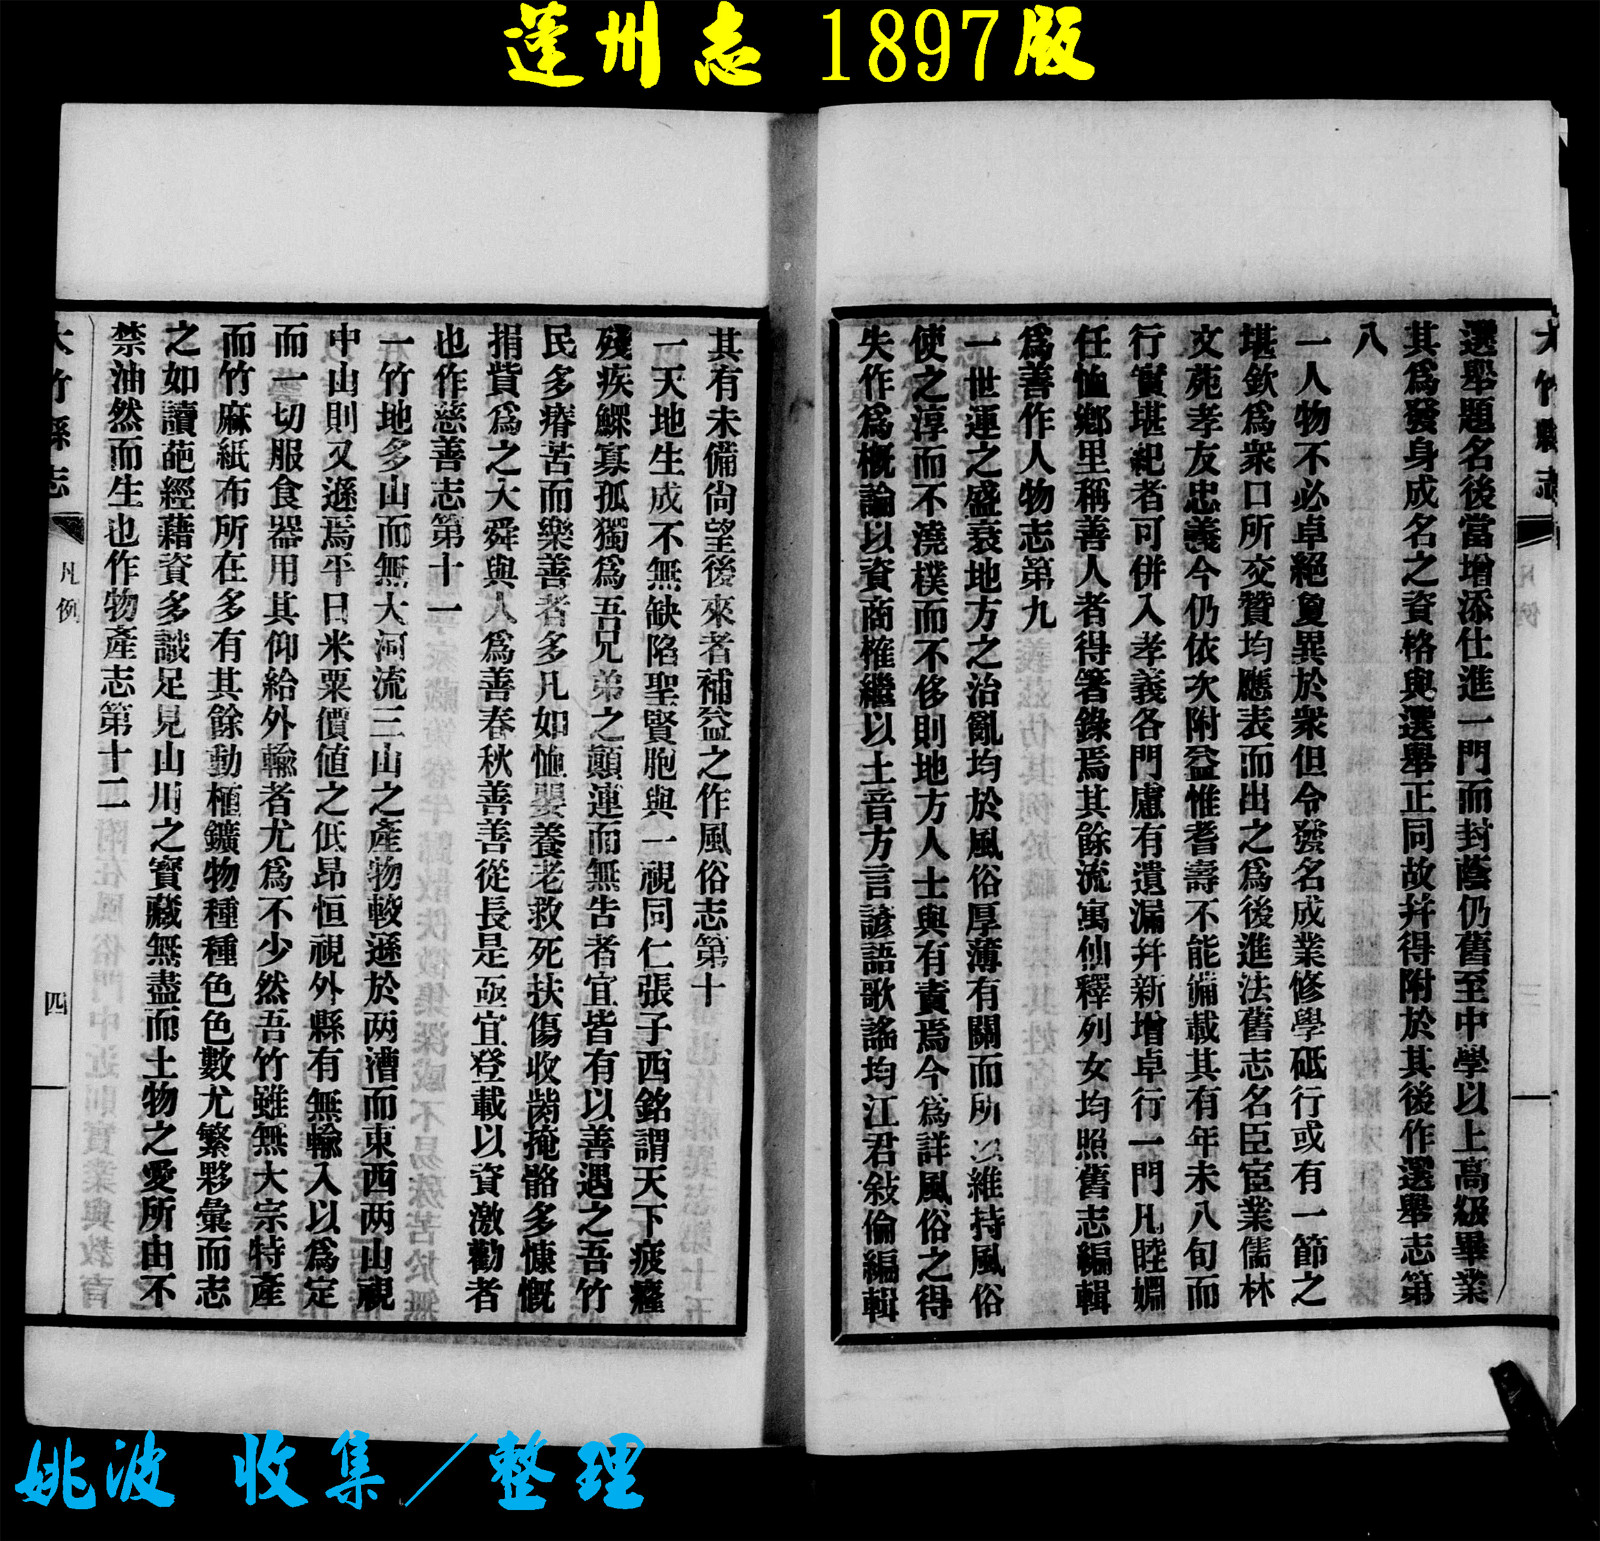 蓬州志 1897版
大竹縣志
凡例
三
選舉題名後當增添仕進一門而封蔭仍舊至中學以上高級畢業
其爲發身成名之資格與選舉正同故幷得附於其後作選舉志第
八
一人物不必卓絕夐異於衆但令發名成業修學砥行或有一節之
堪欽爲衆口所交贊均應表而出之爲後進法舊志名臣宦業儒林
文苑孝友忠義今仍依次附益惟耆壽不能備載其有年未八旬而
行實堪紀者可併入孝義各門慮有遺漏幷新增卓行一門凡睦婣
任恤鄉里稱善人者得箸錄焉其餘流寓仙釋列女均照舊志編輯
爲善作人物志第九
一世運之盛衰地方之治亂均於風俗厚薄有關而所以維持風俗
使之淳而不澆樸而不侈則地方人士與有責焉今爲詳風俗之得
失作爲概論以資商榷繼以土音方言諺語歌謠均江君敍倫編輯
其有未備尙望後來者補益之作風俗志第十
一天地生成不無缺陷聖賢胞與一視同仁張子西銘謂天下疲癃
殘疾鰥寡孤獨爲吾兄弟之顚連而無告者宜皆有以善遇之吾竹
民多瘠苦而樂善者多凡如恤嫠養老救死扶傷收胔掩骼多慷慨
捐貲爲之大舜與人爲善春秋善善從長是亟宜登載以資激勸者
也作慈善志第十一
一竹地多山而無大河流三山之產物較遜於两漕而東西两山視
中山則又遜焉平日米粟價値之低昂恒視外縣有無輸入以爲定
而一切服食器用其仰給外輸者尤爲不少然吾竹雖無大宗特產
而竹麻紙布所在多有其餘動植鑛物種種色色數尤繁夥彙而志
之如讀葩經藉資多識足見山川之寶藏無盡而土物之愛所由不
禁油然而生也作物產志第十二
大竹縣志
凡例
四
姚波 收集／整理